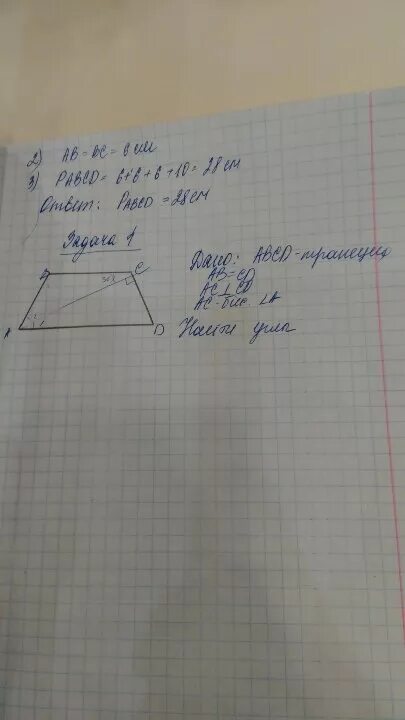 2) AB = BC = 6 см
3) PABCD = 6+6+6+10 = 28 см
Ответ: PABCD = 28 см
Задача 1
B C
A D
Дано: ABCD-трапеция
AB=CD
AC⊥CD
AC-бис. ∠A
Найти углы